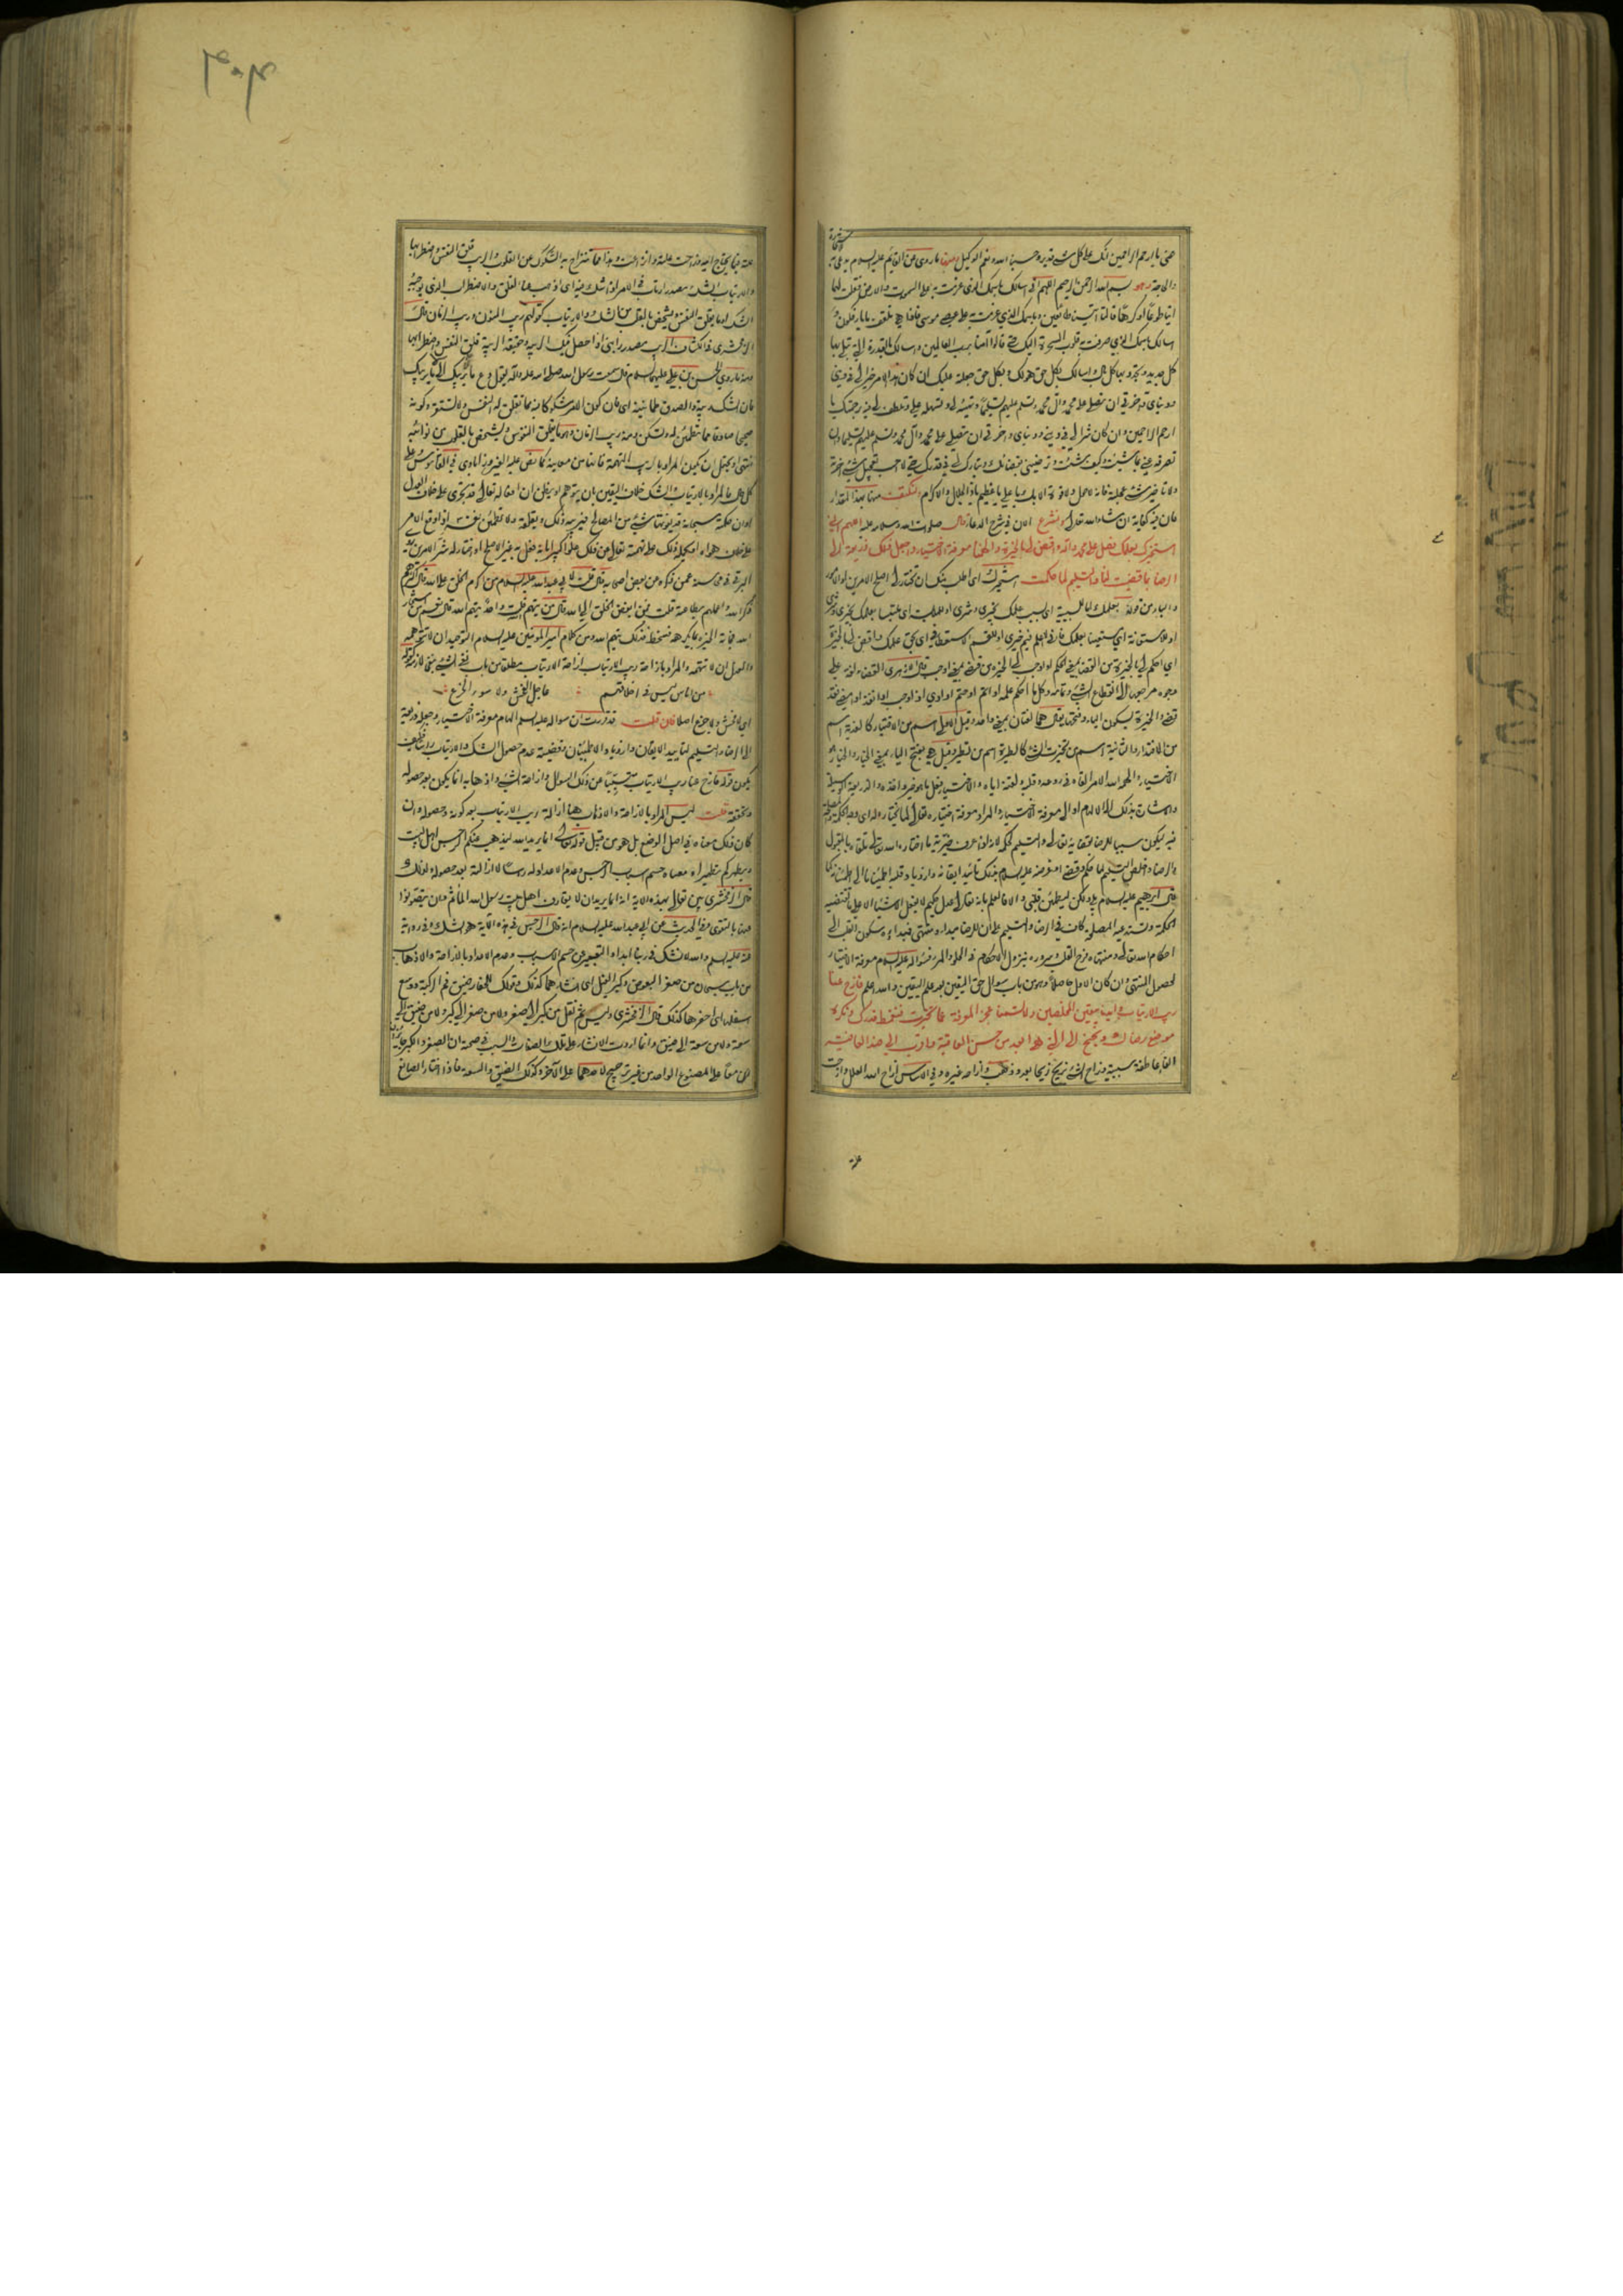 حتى يا ارحم الراحمين انك على كل شيء قدير وحسبنا الله ونعم الوكيل ومنها ما روى عن القائم عليه السلام
بسم الله الرحمن الرحيم اللهم اني اسالك باسمك الذي عزمت به على السموات والارض فقلت لها
ائتيا طوعا او كرها قالتا اتينا طائعين وباسمك الذي عزمت به على عصى موسى فاذا هي تلقف ما يافكون و
اسالك باسمك الذي صرفت به قلوب السحرة اليك حتى قالوا آمنا برب العالمين واسالك بالقدرة التي تبلي بها
كل جديد وتجدد بها كل بال واسالك بكل حق هو لك وبكل حق جعلته عليك ان كان هذا الامر خيرا لي في ديني
ودنياي وآخرتي ان تصلي على محمد وآل محمد وتسلم عليهم تسليما وتهيئه لي وتسهله علي وتلطف لي فيه برحمتك يا
ارحم الراحمين وان كان شرا لي في ديني ودنياي وآخرتي ان تصلي على محمد وآل محمد وتسلم عليهم تسليما وان
تصرفه عني بما شئت وكيف شئت وترضيني بقضائك وتبارك لي في قدرك حتى لا احب تعجيل شيء اخرته
ولا تاخير شيء عجلته فانه لا حول ولا قوة الا بك يا علي يا عظيم يا ذا الجلال والاكرام ولنكتف منها بهذا المقدار
فان فيه كفاية ان شاء الله تعالى ولنشرع الان في شرح الدعاء قال صلوات الله وسلامه عليه اللهم اني
استخيرك بعلمك فصل على محمد وآله واقض لي بالخيرة والهمنا معرفة الاختيار واجعل ذلك ذريعة الى
الرضا بما قضيت لنا والتسليم لما حكمت استخيرك اي اطلب منك ان تختار لي اصلح الامرين او الامور
والباء من قوله بعلمك للسببية اي بسبب علمك بخيري وشري او للملابسة اي ملتبسا بعلمك بخيري وشري
او للاستعانة اي مستعينا بعلمك فاني لا اعلم فيم خيري او للقسم الاستعطافي اي بحق علمك واقض لي بالخيرة
اي احكم لي بالخيرة من القضاء بمعنى الحكم او اوجب لي الخيرة من قضى بمعنى اوجب قال الازهري القضاء لغة على
وجوه مرجعها الى انقطاع الشيء وتمامه وكل ما احكم عمله او اتم او ختم او ادي او اوجب او اعلم او انفذ او امضي فقد
قضي والخيرة بسكون الياء وفتحها يقال هما لغتان بمعنى واحد وقيل الاولى اسم من الاختيار كالفدية اسم
من الافتداء والثانية اسم من تخيرت الشيء كالطيرة اسم من تطير وقيل هي بفتح الياء بمعنى الخيار والخيار هو
الاختيار والهمه الله الامر القاه في روعه وقلبه ولقنه اياه والاختيار فعل ما هو خير واخذه والذريعة الوسيلة
والاشارة بذلك الى الالهام او الى معرفة الاختيار والمراد معرفة اختياره تعالى لما يختاره له
فيه ليكون سببا للرضا بقضائه تعالى والتسليم لحكمه لانه اذا عرف خيرية ما اختاره الله تعالى تلقاه بالقبول
ابرهيم عليه السلام بلى ولكن ليطمئن قلبي والا فالعلم بانه تعالى عدل حكيم لا يفعل الاشياء الا على ما تقتضيه
الحكمة وتستدعيه المصلحة كاف في الرضا والتسليم على ان للرضا مبدء ومنتهى فمبداه سكون القلب الى
احكام الله تعالى ومنتهاه فرح القلب وسروره بنزول الاحكام في الحلو والمر فسؤاله عليه السلام معرفة الاختيار
لحصول المنتهى وان كان الاول حاصلا وهو من باب سؤال حق اليقين بعد علم اليقين والله اعلم فازح عنا
ريب الارتياب وايدنا بيقين المخلصين ولا تسمنا عجز المعرفة عما تخيرت فنغمط قدرك ونكره
موضع رضاك ونجنح الى التي هي ابعد من حسن العاقبة واقرب الى ضد العافية
الفاء عاطفة سببية وزاح الشيء يزيح زيحا بعد وذهب وازاحه غيره وفي الاساس ازاح الله العلل وازحت
علته فيما يحتاج اليه وزاحت علته وانزاحت وهذا مما تنزاح به الشكوك عن القلوب والريب قلق النفس واضطرابها
والارتياب الشك مصدر ارتاب في الامر اذا شك فيه اي اذهب عنا القلق والاضطراب الذي يوجبه
الشك او ما يقلق النفس ويشخص بالقلب من الشك والارتياب كقولهم ريب المنون وريب الزمان قال
الزمخشري في الكشاف الريب مصدر رابني اذا حصل فيك الريبة وحقيقة الريبة قلق النفس واضطرابها
ومنه ما روى الحسن بن علي عليهما السلام قال سمعت رسول الله صلى الله عليه وآله يقول دع ما يريبك الى ما لا يريبك
فان الشك ريبة والصدق طمانينة اي فان كون الامر مشكوكا فيه مما تقلق له النفس ولا تستقر وكونه
صحيحا صادقا مما تطمئن له وتسكن ومنه ريب الزمان وهو ما يقلق النفوس ويشخص بالقلوب من نوائبه
انتهى ويحتمل ان يكون المراد بالريب التهمة فانها من معانيه كما نص عليه الفيروزابادي في القاموس وعلى
كل حال فالمراد بالارتياب الشك خلاف اليقين بان يتوهم او يظن ان افعاله تعالى قد تجري على خلاف العدل
البرقي في محاسنه عمن ذكره عن بعض اصحابه قال قلت لابي عبد الله عليه السلام من اكرم الخلق على الله قال اكثرهم
ذكرا لله واعملهم بطاعته قلت فمن ابغض الخلق الى الله قال من يتهم الله قلت واحد يتهم الله قال نعم من استخار
الله فجاءته الخيرة بما يكره فسخط فذلك يتهم الله ومن كلام امير المؤمنين عليه السلام التوحيد ان لا تتوهمه
والعدل ان لا تتهمه والمراد بازاحة ريب الارتياب ازاحة الارتياب مطلقا من باب نفي الشيء بنفي لازمه كقوله
من اناس ليس في اخلاقهم عاجل الفحش ولا سوء الجزع
اي لا فحش ولا جزع اصلا فان قلت قد قررت ان سؤاله عليه السلام الهام معرفة الاختيار وجعله ذريعة
الى الرضا والتسليم لتاييد الايقان وازدياد الاطمينان وقضيته عدم حصول الشك والارتياب راسا فكيف
يكون قوله فازح عنا ريب الارتياب مسببا عن ذلك السؤال وازاحة الشيء واذهابه انما يكون بعد حصوله
وتحققه قلت ليس المراد بالازاحة والاذهاب هنا ازالة ريب الارتياب بعد كونه وحصوله وان
كان ذلك معناه في اصل الوضع بل هو من قبيل قوله تعالى انما يريد الله ليذهب عنكم الرجس اهل البيت
ويطهركم تطهيرا اذ معناه حسم سبب الرجس وعدم الاعداد له راسا لا ازالته بعد حصوله ولذلك
قال الزمخشري بين تعالى بهذه الآية انه انما يريد ان لا يقارف اهل بيت رسول الله المآثم وان يتصونوا
عنها بالتقوى وفي الحديث عن ابي عبد الله عليه السلام انه قال الرجس في هذه الآية هو الشك وفي رواية
عنه عليه السلام والله لا نشك في ربنا ابدا والتعبير عن حسم السبب وعدم الاعداد بالازاحة والاذهاب
من باب سبحان من صغر البعوض وكبر الفيل اي انشاهما كذلك وقولك للحفار ضيق فم الركية ووسع
اسفلها اي احفرها كذلك قال الزمخشري وليس ثم نقل من كبر الى صغر ولا من صغر الى كبر ولا من ضيق الى
سعة ولا من سعة الى ضيق وانما اردت الانشاء على تلك الصفات والسبب في صحته ان الصغر والكبر جائزان
معا على المصنوع الواحد من غير ترجيح لاحدهما على الآخر وكذلك الضيق والسعة فاذا اختار الصانع